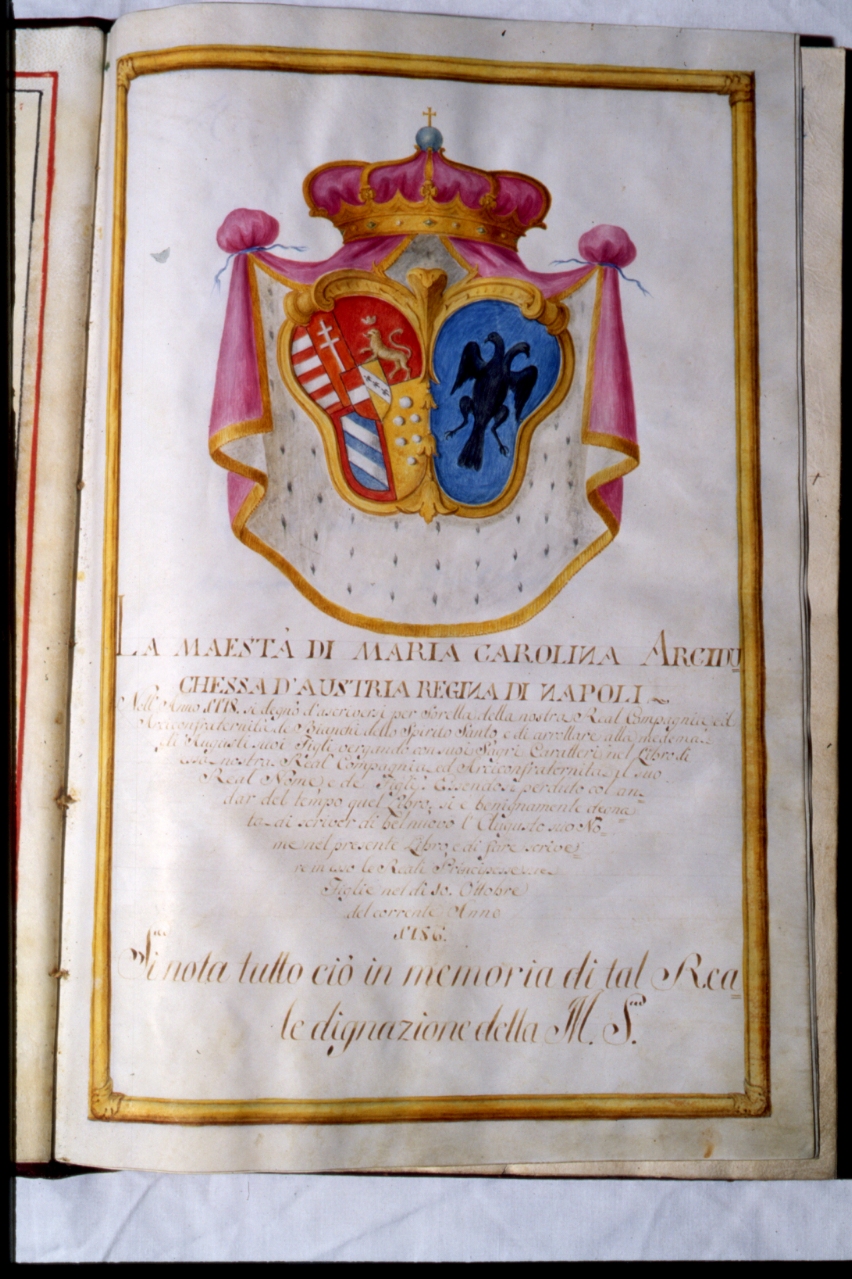 LA MAESTÀ DI MARIA CAROLINA ARCIDU
CHESSA D'AUSTRIA REGINA DI NAPOLI
Nell'Anno si degnò d'ascriversi per Sorella della nostra Real Compagnia ed
Arciconfraternita de Bianchi dello Spirito Santo, e di arrollare alla medema
gli Augusti suoi Figli vergando con suoi Sagri Caratteri nel Libro di
essa nostra Real Compagnia ed Arciconfraternita il suo
Real Nome e de Figlj. Essendosi perduto col an=
dar del tempo quel Libro, si è benignamente degna
ta di scriver di bel nuovo l'Augusto suo No=
me nel presente Libro e di fare scrive=
re in esso le Reali Principesse sue
Figlie nel dì 10. Ottobre
del corrente Anno
Si nota tutto ciò in memoria di tal Rea=
le dignazione della M. S.